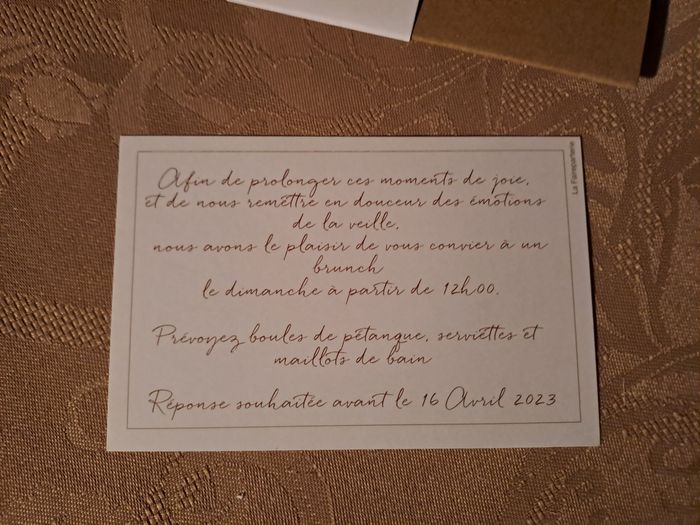 Afin de prolonger ces moments de joie,
et de nous remettre en douceur des émotions
de la veille,
nous avons le plaisir de vous convier à un
brunch
le dimanche à partir de 12h00.
Prévoyez boules de pétanque, serviettes et
maillots de bain
Réponse souhaitée avant le 16 Avril 2023
La Fairepart​erie